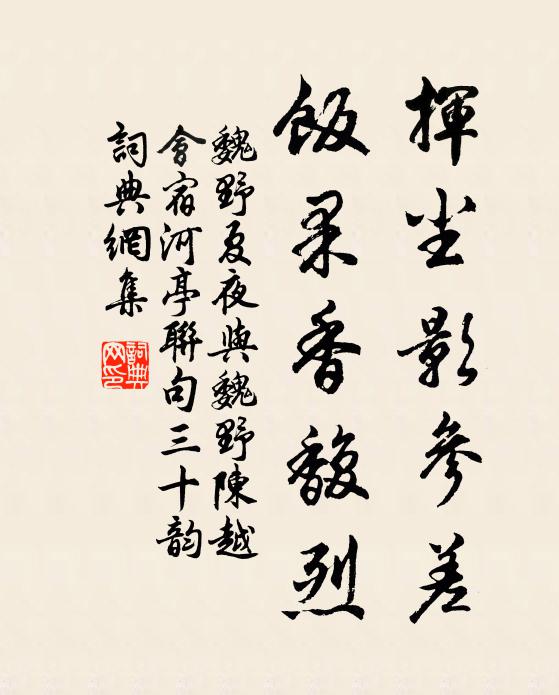 揮尘影參差
飯果香馥烈
魏野夏夜與魏野陳越
會宿河亭聯句三十韵
詞典網集
詞典网印